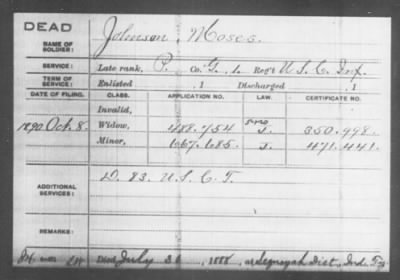 DEAD
NAME OF SOLDIER: Johnson, Moses.
SERVICE: Late rank, P. Co. G. 1. Reg't U.S.C. Inf.
TERM OF SERVICE: Enlisted , 1 Discharged , 1
DATE OF FILING. CLASS. APPLICATION NO. LAW. CERTIFICATE NO.
Invalid,
1890 Oct. 8. Widow, 488.754 350.998.
Minor, 667.685. 471.441
ADDITIONAL SERVICES: D. 83. U.S.C.T.
REMARKS:
Died July 30, 1888, at Sequoyah Dist, Ind. Ty